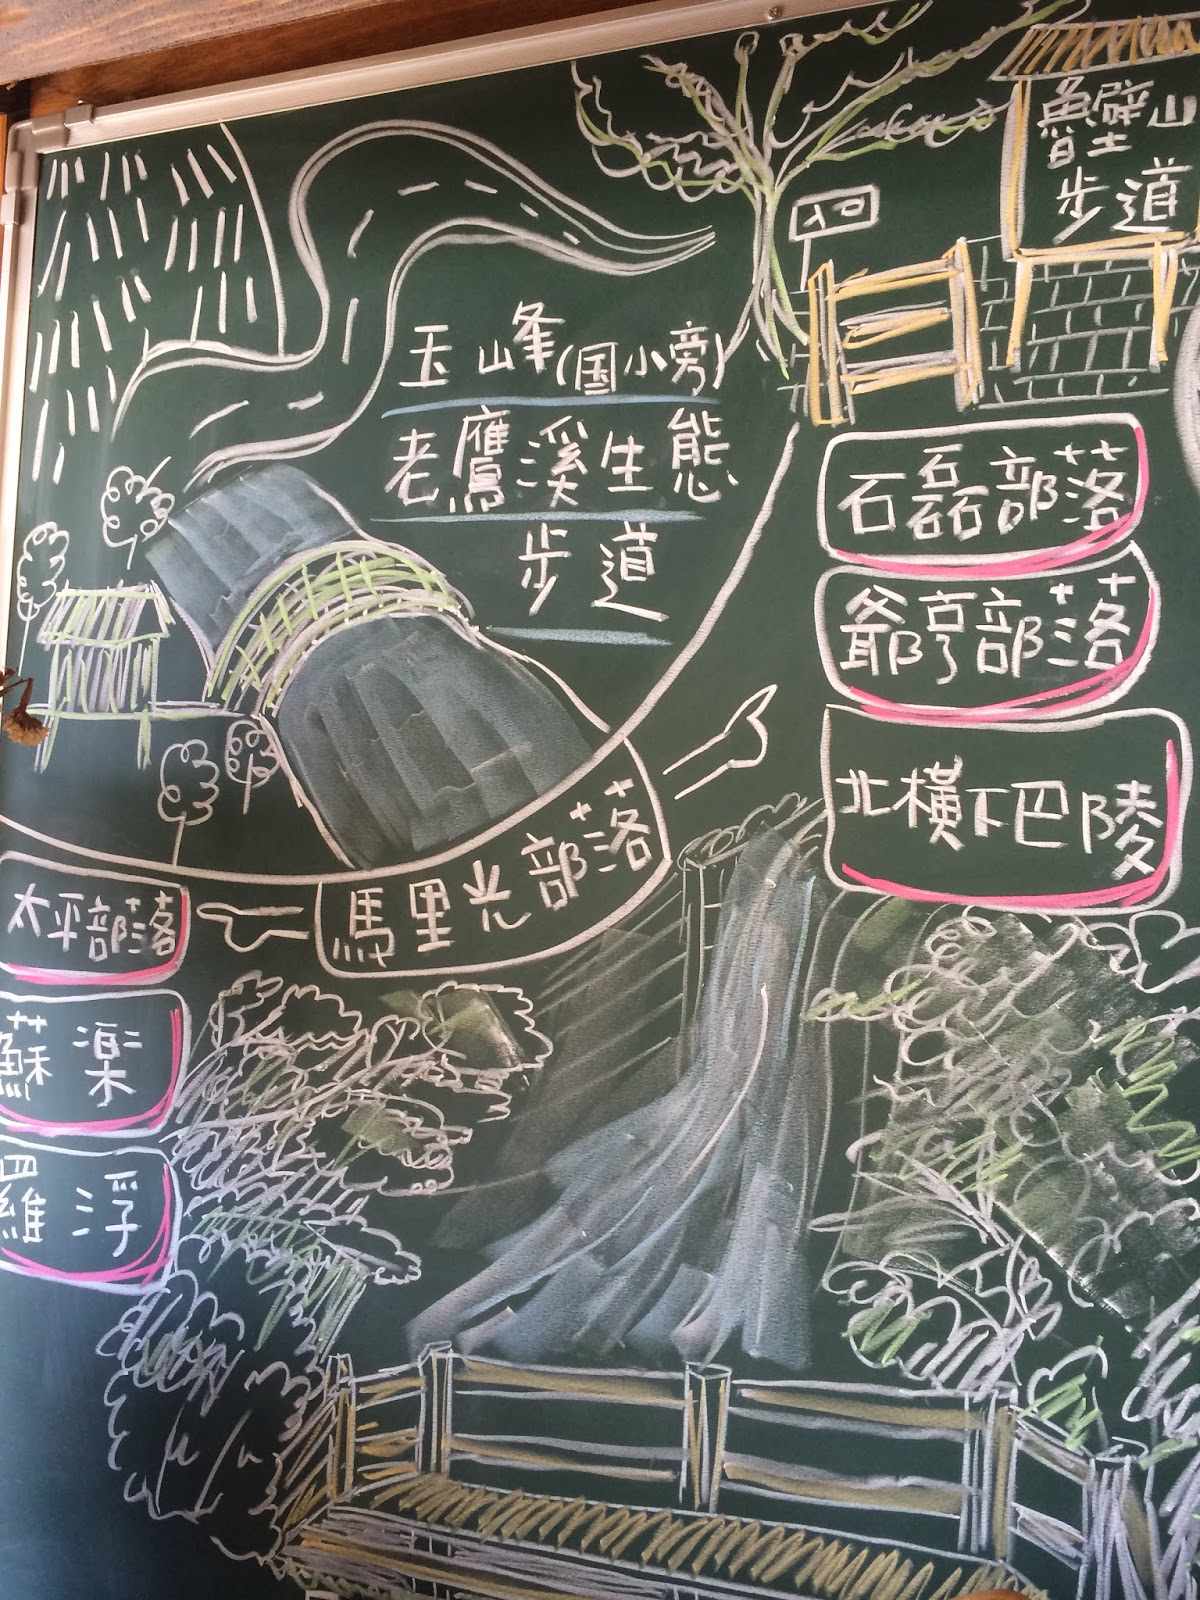 魯壁山
步道
入口
玉山峯(国小旁)
老鷹溪生態
步道
石磊部落
爺亨部落
北橫下巴陵
馬里光部落
太平部落
蘇楽
羅浮